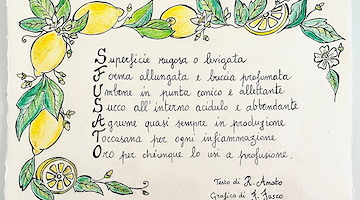 Superficie rugosa o levigata
Forma allungata e buccia profumata
Umbone in punta conico e allettante
Succo all'interno acidulo e abbondante
Agrume quasi sempre in produzione
Toccasana per ogni infiammazione
Oro per chiunque lo usi a profusione.
Testo di R. Amato
Grafica di F. Fusco